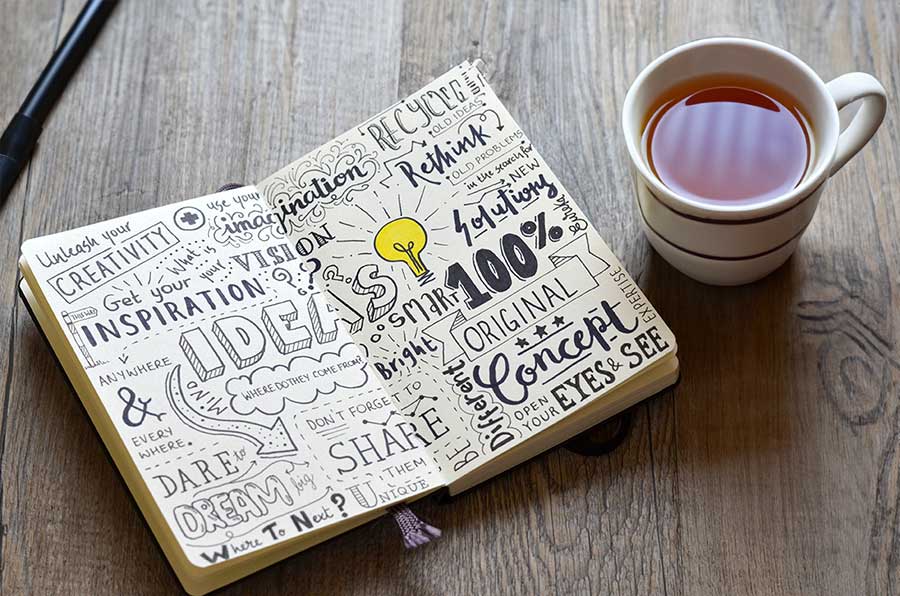 Unleash your
CREATIVITY
+ use your
imagination
What's your
VISION?
Get your
INSPIRATION
THIS WAY
ANYWHERE
&
EVERY
WHERE.
IDEAS
WHERE DO THEY COME FROM?
DON'T FORGET
TO
SHARE
THEM
DARE to
DREAM big
UNIQUE
WHERE TO NEXT?
RECYCLE
OLD IDEAS
Rethink
OLD PROBLEMS
in the search for
NEW
Solutions
SMART
100%
Bright
ORIGINAL
Concept
BE
Different
OPEN
YOUR
EYES & SEE
EXPERTISE